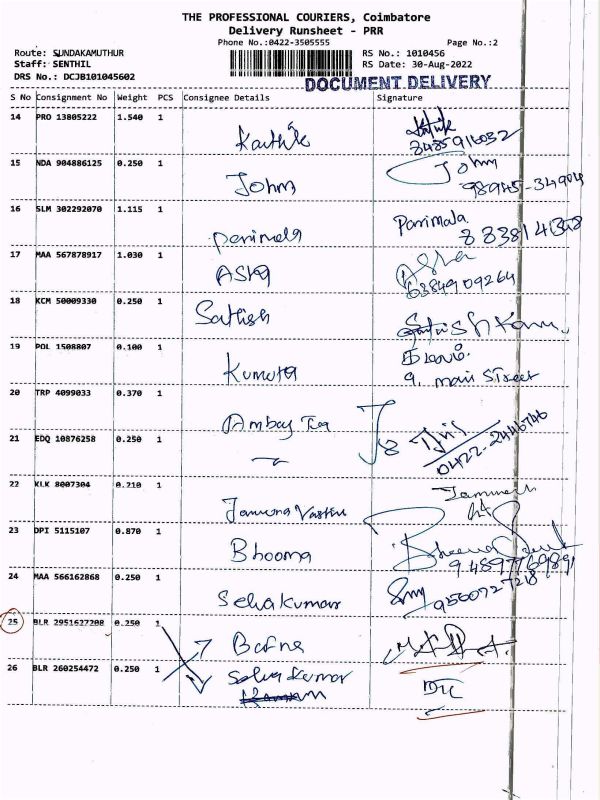 THE PROFESSIONAL COURIERS, Coimbatore
Delivery Runsheet - PRR
Phone No.:0422-3505555 Page No.:2
Route: SUNDAKAMUTHUR RS No.: 1010456
Staff: SENTHIL RS Date: 30-Aug-2022
DRS No.: DCJB101045602
DOCUMENT DELIVERY
S No Consignment No Weight PCS Consignee Details Signature
14 PRO 13805222 1.540 1
Karthik
8485916032
15 NDA 904886125 0.250 1
John John
98945-34904
16 SLM 302292070 1.115 1
Parimala Parrimala
17 MAA 567878917 1.030 1
Asha Asha
6384909264
18 KCM 50009330 0.250 1
Sathish
19 POL 1508807 0.100 1
9, main Street
20 TRP 4099033 0.370 1
21 EDQ 10876258 0.250 1
0422-2446746
22 KLK 8007304 0.210 1
23 DPI 5115107 0.870 1
Bhooma
24 MAA 566162868 0.250 1
Selvakumar
9560727218
25 BLR 2951627208 0.250 1
26 BLR 260254472 0.250 1
Selva Kumar